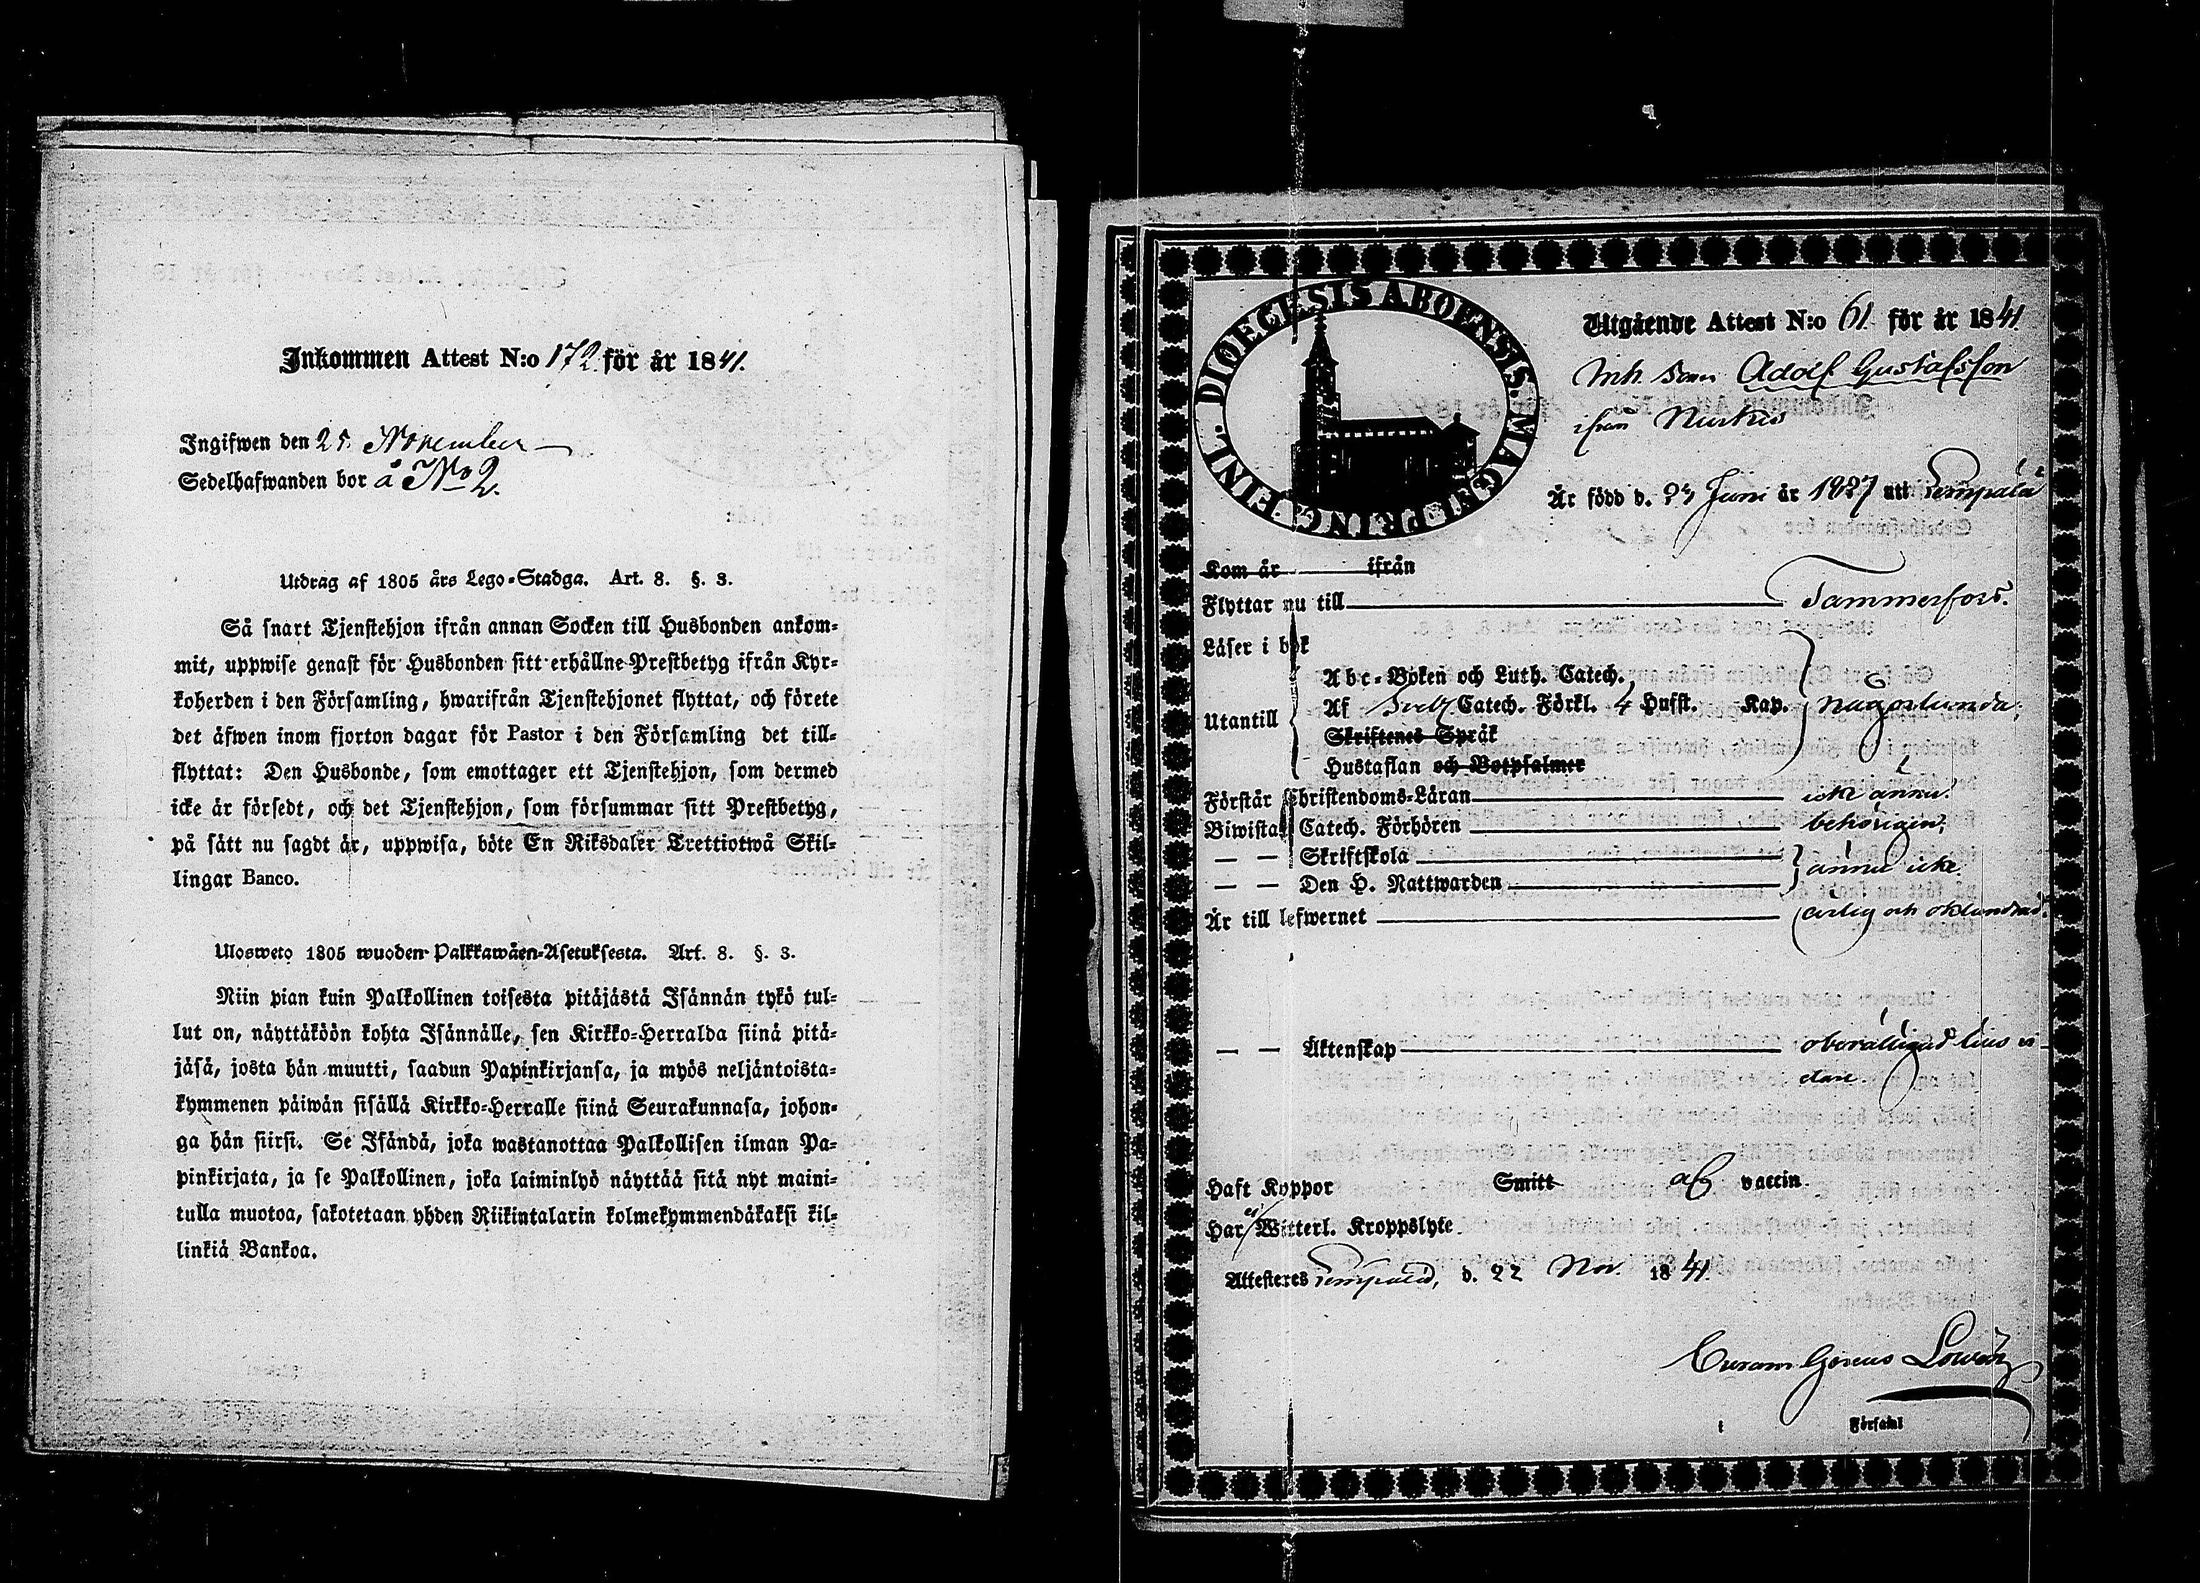 Inkommen Attest N:o 172 för år 1841.
Ingifwen den 25. November
Sedelhafwanden bor å No 2.
Utdrag af 1805 års Lego-Stadga. Art. 8. §. 3.
Så snart Tjenstehjon ifrån annan Socken till Husbonden ankom-
mit, uppwise genast för Husbonden sitt erhållne Prestbetyg ifrån Kyr-
koherden i den Församling, hwarifrån Tjenstehjonet flyttat, och förete
det äfwen inom fjorton dagar för Pastor i den Församling det till-
flyttat: Den Husbonde, som emottager ett Tjenstehjon, som dermed
icke är försedt, och det Tjenstehjon, som försummar sitt Prestbetyg,
på sätt nu sagdt är, uppwisa, böte En Riksdaler Trettiotwå Skil-
lingar Banco.
Ulosweto 1805 wuoden Palkkawäen-Asetuksesta. Art. 8. §. 3.
Niin pian kuin Palkollinen toisesta pitäjästä Isännän tykö tul-
lut on, näyttäköön kohta Isännälle, sen Kirkko-Herralda siinä pitä-
jäsä, josta hän muutti, saadun Papinkirjansa, ja myös neljäntoista-
kymmenen päiwän sisällä Kirkko-Herralle siinä Seurakunnasa, johon-
ga hän siirsi. Se Isändä, joka wastanottaa Palkollisen ilman Pa-
pinkirjata, ja se Palkollinen, joka laiminlyö näyttää sitä nyt maini-
tulla muotoa, sakotetaan yhden Riikintalarin kolmekymmendäkaksi kil-
linkiä Bankoa.
DIOECESIS ABOENSIS. MAGNI PRINC. FINL.
Utgående Attest N:o 61 för år 1841
Inh. Son Adolf Gustafsson
ifrån
Är född d. 24 Juni år 1827 uti
Kom år ifrån
Flyttar nu till Tammerfors.
Läser i bok
Abc-Boken och Luth. Catech.
Utantill Af Catech. Förkl. 4 Hufst. Kap. någorlunda.
Skriftenes Språk
Hustaflan och Botpsalmer
Förstår Christendoms-Läran icke ännu.
Biwistat Catech. Förhören behörigen,
— — Skriftskola
ännu icke.
— — Den H. Nattwarden
Är till lefwernet ärlig och oklandrad.
— — Äktenskap
Haft Koppor Smitt af vaccin
Har ej Witterl. Kroppslyte
Attesteres d. 22 Nov. 1841.
i Församl